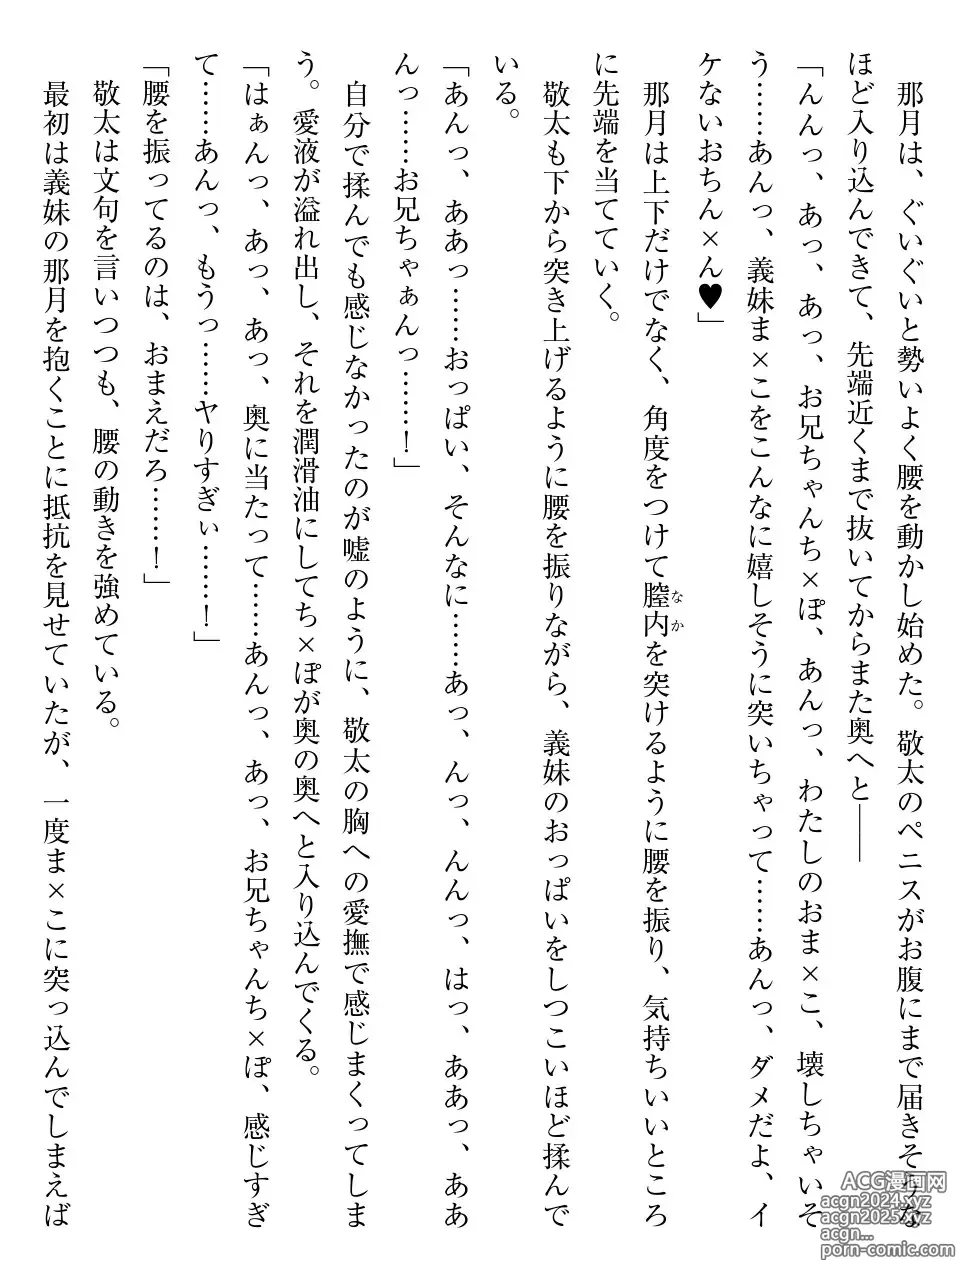 那月は、ぐいぐいと勢いよく腰を動かし始めた。敬太のペニスがお腹にまで届きそうな
ほど入り込んできて、先端近くまで抜いてからまた奥へと――
「んんっ、あっ、あっ、お兄ちゃんち×ぽ、あんっ、わたしのおま×こ、壊しちゃいそ
う……あんっ、義妹ま×こをこんなに嬉しそうに突いちゃって……あんっ、ダメだよ、イ
ケないおちん×ん♥」
那月は上下だけでなく、角度をつけて膣内を突けるように腰を振り、気持ちいいところ
なか
に先端を当てていく。
敬太も下から突き上げるように腰を振りながら、義妹のおっぱいをしつこいほど揉んで
いる。
「あんっ、ああっ……おっぱい、そんなに……あっ、んっ、んんっ、はっ、ああっ、ああ
んっ……お兄ちゃぁんっ……！」
自分で揉んでも感じなかったのが嘘のように、敬太の胸への愛撫で感じまくってしま
う。愛液が溢れ出し、それを潤滑油にしてち×ぽが奥の奥へと入り込んでくる。
「はぁんっ、あっ、あっ、奥に当たって……あんっ、あっ、お兄ちゃんち×ぽ、感じすぎ
て……あんっ、もうっ……ヤりすぎぃ……！」
「腰を振ってるのは、おまえだろ……！」
敬太は文句を言いつつも、腰の動きを強めている。
最初は義妹の那月を抱くことに抵抗を見せていたが、一度ま×こに突っ込んでしまえば
ACG漫画网
acgn2024.xyz
acgn2025.xyz
acgn...
porn-comic.com